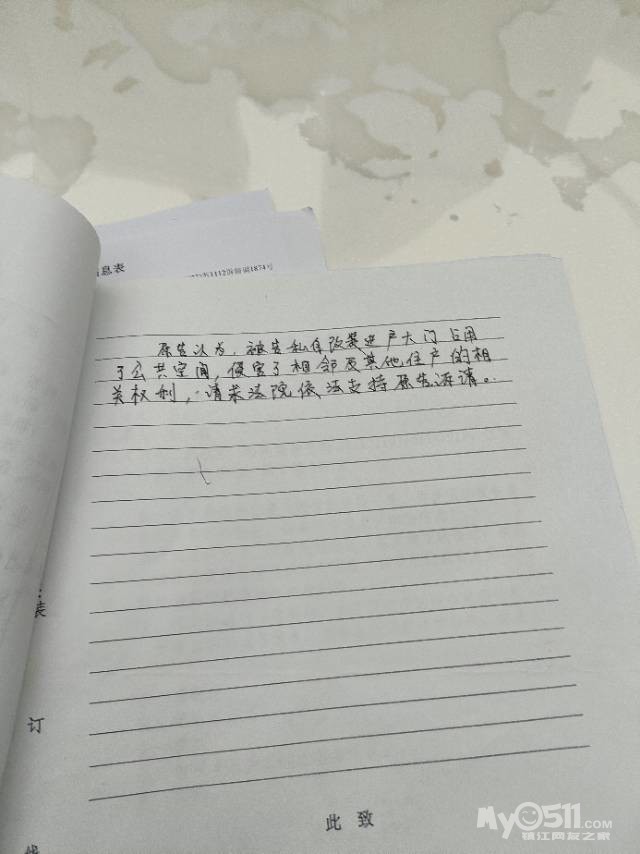 息表
1112
1874号
原告认为,被告私自改装进户大门占用
了公共空间,侵害了相邻及其他住户的相
关权利,请求法院依法支持原告诉请。
装
订
线
此致
My0511.COM
镇江网友之家